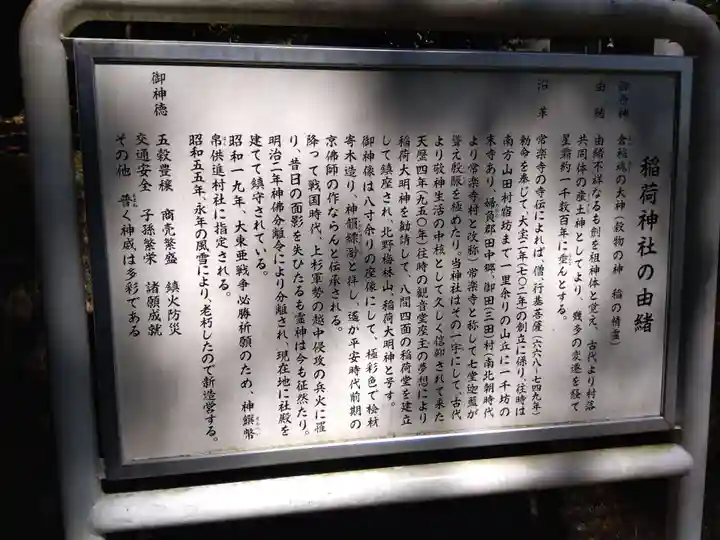 稲荷神社の由緒
御祭神　倉稲魂の大神(穀物の神　稲の精霊)
由緒　由緒不詳なるも劍を祖神体と覚え、古代より村落
共同体の産土神としてより、幾多の変遷を経て
星霜約一千数百年に垂んとする。
沿革　常楽寺の寺伝によれば、僧・行基菩薩(六六八-七四九年)
勅命を奉じて、大宝二年(七〇二年)の創立に係り、往時は
南方山田村宿坊まで一里余りの山丘に一千坊の
末寺あり、婦負郡田中郷、御田三田村(南北朝時代
より常楽寺村と改称)常楽寺と称して七堂迦藍が
聳え殷賑を極めたり。当神社はその一宇にして、古代
より敬神生活の中核として久しく信仰されて来た
天歴四年(九五〇年)往時の観音堂座主の夢想により
稲荷大明神を勧請して、八間四面の稲荷堂を建立
して鎮座され、北野梅林山稲荷大明神と号す。
御神像は八寸余りの座像にして、極彩色で桧材
寄木造り、神韻縹渺と拝し、遙か平安時代前期の
京佛師の作ならんと伝承される。
降って戦国時代、上杉軍勢の越中侵攻の兵火に罹
り、昔日の面影を失ひたるも霊神は今も征然たり。
明治二年神佛分離令により分離され、現在地に社殿を
建てて鎮守されている。
昭和一九年、大東亜戦争必勝祈願のため、神饌幣
帛供進村社に指定される。
昭和五五年、永年の風雪により、老朽したので新造営する。
御神徳　五穀豊穣　商売繁盛　鎮火防災
交通安全　子孫繁栄　諸願成就
その他　普く神威は多彩である